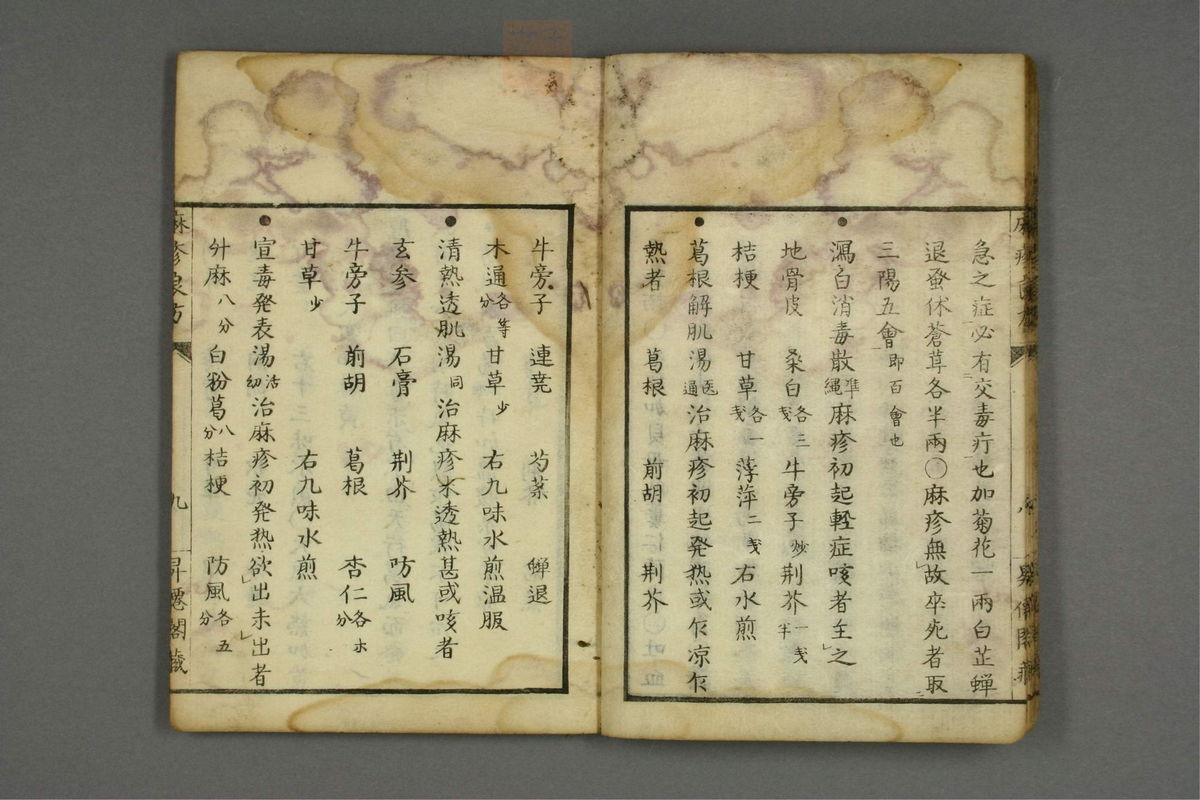 急之症必有交毒疔也加菊花一兩白芷蟬
退蚤休蒼茸各半兩○麻疹無故卒死者取
三陽五會即百會也
瀉白消毒散準繩麻疹初起軽症咳者主之
地骨皮 桑白各三戔 牛旁子炒 荆芥一戔半
桔梗 甘草各一戔 薄萍二戔 右水煎
葛根解肌湯医通治麻疹初起発熱或乍凉乍
熱者 葛根 前胡 荆芥
牛旁子 連壳 芍薬 蟬退
木通各等分 甘草少 右九味水煎温服
清熱透肌湯同治麻疹未透熱甚或咳者
玄参 石膏 荆芥 防風
牛旁子 前胡 葛根 杏仁各分
甘草少 右九味水煎
宣毒発表湯活幼治麻疹初発热欲出未出者
升麻八分 白粉葛八分 桔梗 防風各五分
麻疹良方 九 昇遷閣藏